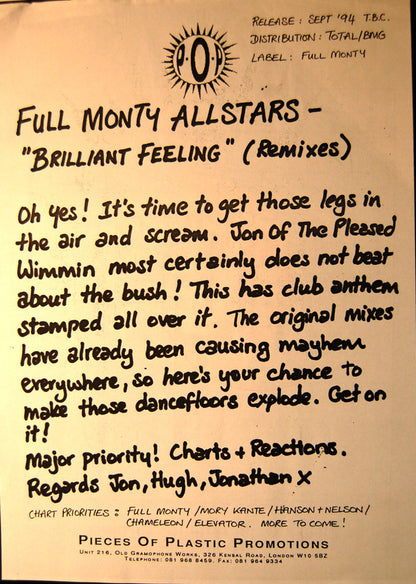 RELEASE : SEPT '94 T.B.C.
DISTRIBUTION : TOTAL/BMG
LABEL : FULL MONTY
P.O.P
FULL MONTY ALLSTARS -
"BRILLIANT FEELING" (Remixes)
Oh yes! It's time to get those legs in
the air and scream. Jon Of The Pleased
Wimmin most certainly does not beat
about the bush! This has club anthem
stamped all over it. The original mixes
have already been causing mayhem
everywhere, so here's your chance to
make those dancefloors explode. Get on
it!
Major priority! Charts + Reactions.
Regards Jon, Hugh, Jonathan X
CHART PRIORITIES : FULL MONTY / MORY KANTE / HANSON + NELSON /
CHAMELEON / ELEVATOR. MORE TO COME!
PIECES OF PLASTIC PROMOTIONS
UNIT 216, OLD GRAMOPHONE WORKS, 326 KENSAL ROAD, LONDON W10 5BZ
TELEPHONE: 081 968 8459. FAX: 081 964 9334